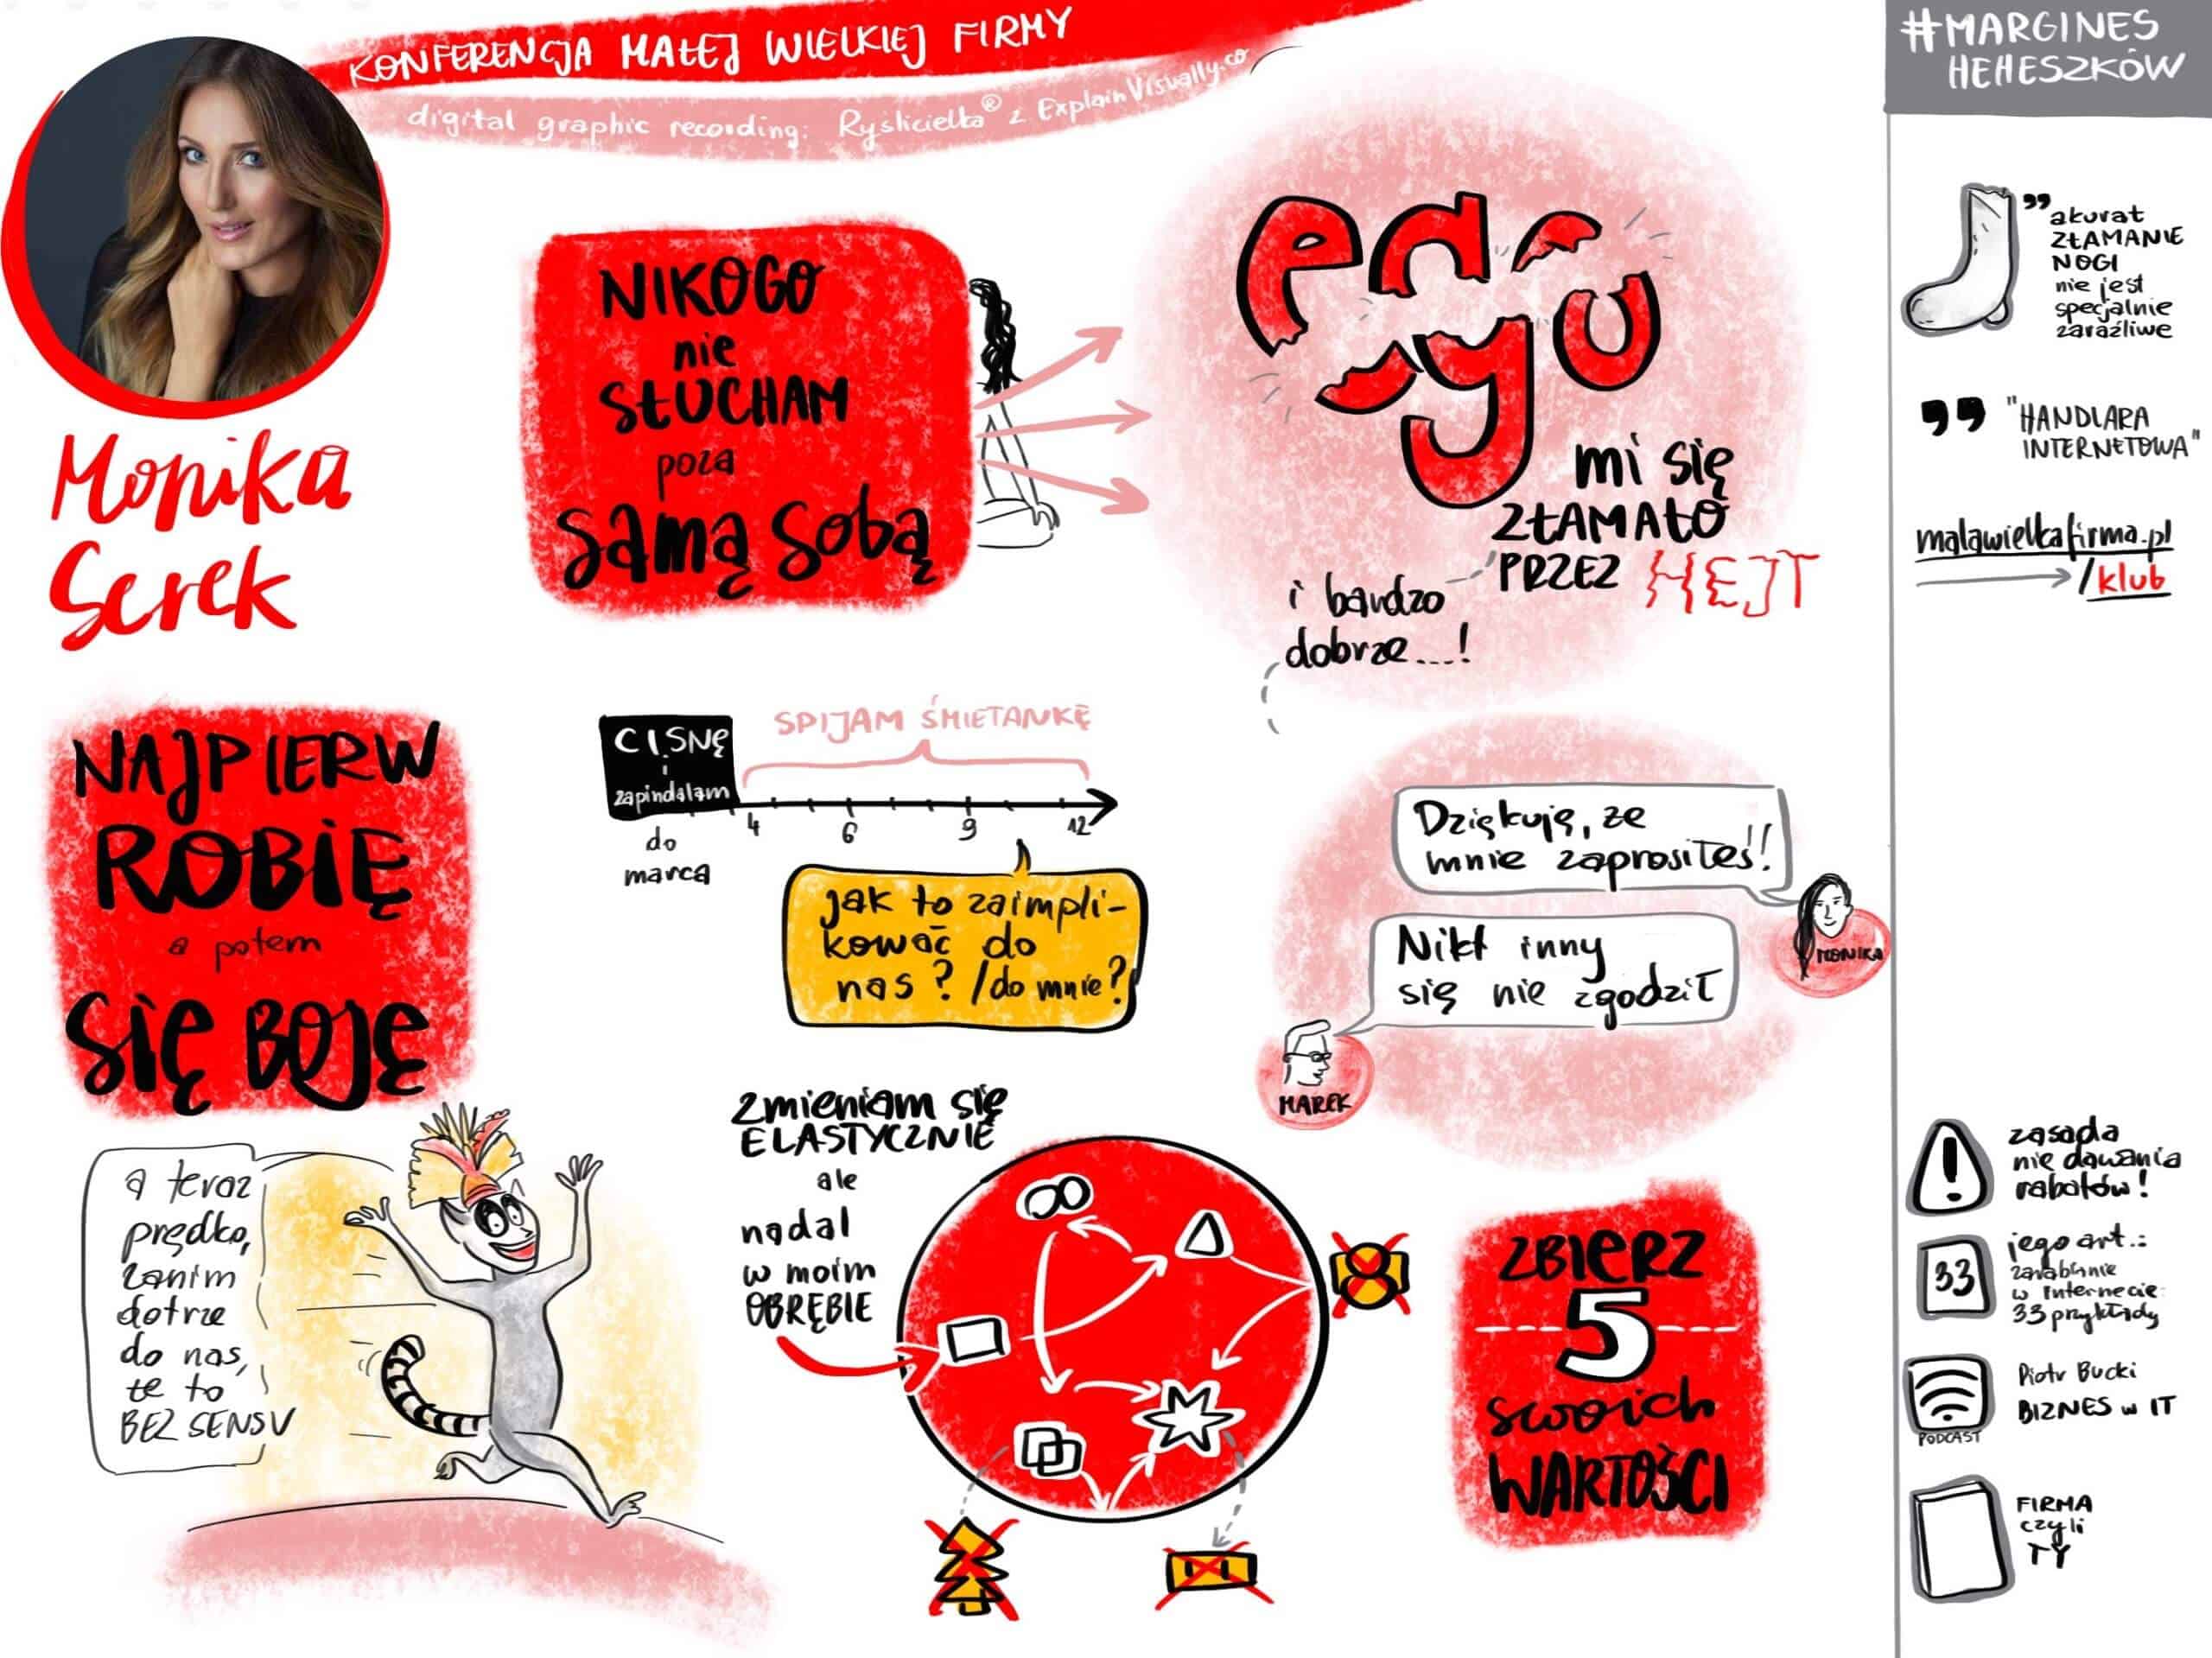 KONFERENCJA MAŁEJ WIELKIEJ FIRMY
digital graphic recording: Ryślicielka® z ExplainVisually.co
Monika
Serek
NIKOGO
nie
SŁUCHAM
poza
samą sobą
mi się
ZŁAMAŁO
PRZEZ HEJT
i bardzo
dobrze...!
NAJPIERW
ROBIĘ
a potem
się BOJĘ
a teraz
prędko,
zanim
dotrze
do nas,
że to
BEZ SENSU
CISNĘ
i
zapindalam
do
marca
SPIJAM ŚMIETANKĘ
4 6 9 12
jak to zaimpli-
kować do
nas? /do mnie?
Dziękuję, że
mnie zaprosiłeś!!
MONIKA
Nikt inny
się nie zgodził
MAREK
zmieniam się
ELASTYCZNIE
ale
nadal
w moim
OBRĘBIE
ZBIERZ
5
swoich
WARTOŚCI
#MARGINES
HEHESZKÓW
" akurat
ZŁAMANIE
NOGI
nie jest
specjalnie
zaraźliwe
" "HANDLARA
INTERNETOWA"
malawielkafirma.pl
/klub
zasada
nie dawania
rabatów!
33
jego art.:
zarabianie
w internecie
33 przykłady
PODCAST
Piotr Bucki
BIZNES w IT
FIRMA
czyli
TY